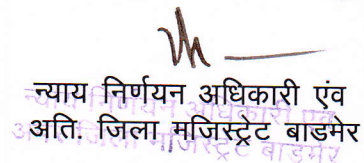 न्याय निर्णयन अधिकारी एंव
अति. जिला मजिस्ट्रेट बाडमेर
न्याय निर्णयन अधिकारी एंव
अति. जिला मजिस्ट्रेट बाडमेर